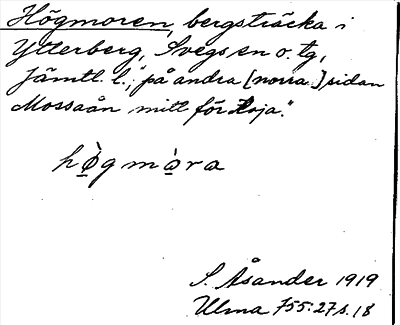 Högmoren, bergsträcka i
Ytterberg, Svegs sn o. tg,
Jämtl. l., "på andra [norra] sidan
Mossaån mitt för Hoja".
hø̀gmòra
S. Åsander 1919
Ulma 755:27 s. 18